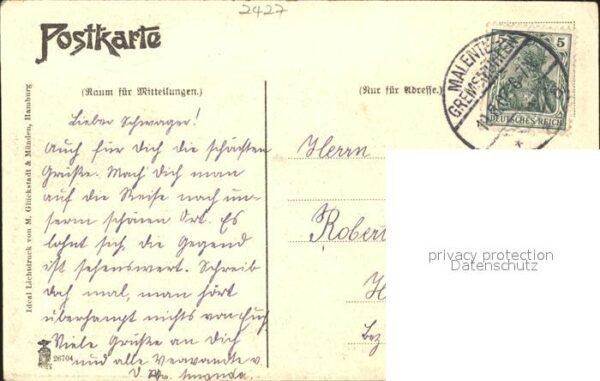 2427
Postkarte
(Raum für Mitteilungen.)
(Nur für Adresse.)
MALENTE-
GREMSMÜHLEN
5
DEUTSCHES REICH
Ideal Lichtdruck von M. Glückstadt & Münden, Hamburg
26704
Lieber Schwager!
Auch für Dich die schönsten
Grüße. Mach Dich man
auf die Reise nach un-
serm schönen Ort. Es
lohnt sich, die Gegend
ist sehenswert. Schreib
doch mal, man hört
überhaupt nichts von Euch
Viele Grüße an Dich
und alle Verwandte v.
Herrn
Robert
H
Bez
privacy protection
Datenschutz